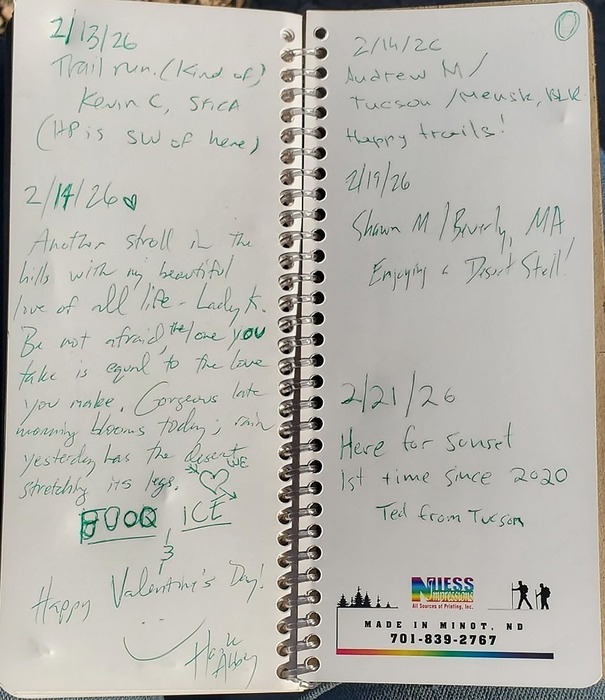 2/13/26
Trail run. (Kind of)
Kevin C, SFCA
(HP is SW of here)
2/14/26
Another stroll in the
hills with my beautiful
love of all life - Lady K.
Be not afraid, the love you
take is equal to the love
you make. Gorgeous late
morning blooms today; rain
yesterday has the desert
stretching its legs.
WE
ICE
Happy Valentine's Day!
Abbey
2/14/26
Andrew M/
Tucson / BLR
Happy trails!
2/19/26
Shawn M / Beverly, MA
Enjoying a Desert Stroll!
2/21/26
Here for sunset
1st time since 2020
Ted from Tucson
NIESS
Impressions
All Sources of Printing, Inc.
MADE IN MINOT, ND
701-839-2767